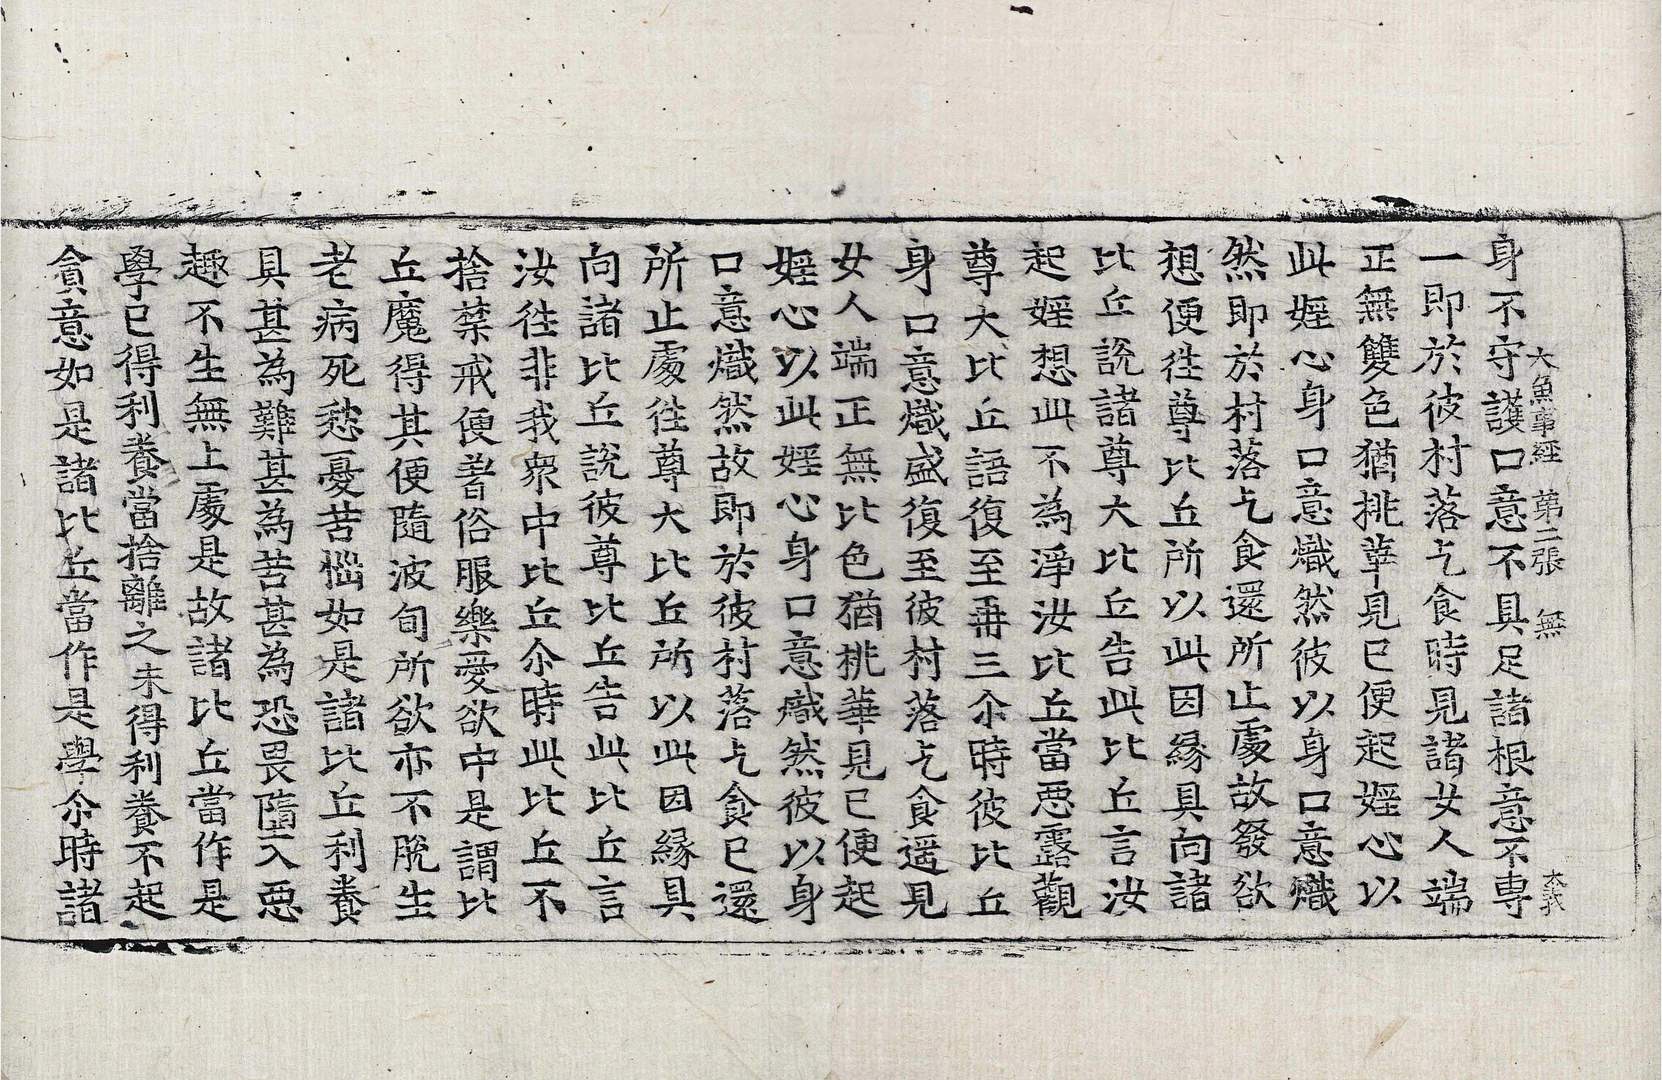 大魚事經 第二張 無
身不守護口意不具足諸根意不専
一即於彼村落乞食時見諸女人端
正無雙色猶桃華見已便起婬心以
此婬心身口意熾然彼以身口意熾
然即於村落乞食還所止處故發欲
想便徃尊比丘所以此因緣具向諸
比丘說諸尊大比丘告此比丘言汝
起婬想此不為淨汝比丘當惡露觀
尊大比丘語復至再三尒時彼比丘
身口意熾盛復至彼村落乞食遥見
女人端正無比色猶桃華見已便起
婬心以此婬心身口意熾然彼以身
口意熾然故即於彼村落乞食已還
所止處徃尊大比丘所以此因緣具
向諸比丘說彼尊比丘告此比丘言
汝徃非我衆中比丘尒時此比丘不
捨禁戒便著俗服樂愛欲中是謂比
丘魔得其便隨波旬所欲亦不脫生
老病死愁憂苦惱如是諸比丘利養
具甚為難甚為苦甚為恐畏墮入惡
趣不生無上處是故諸比丘當作是
學已得利養當捨離之未得利養不起
貪意如是諸比丘當作是學尒時諸